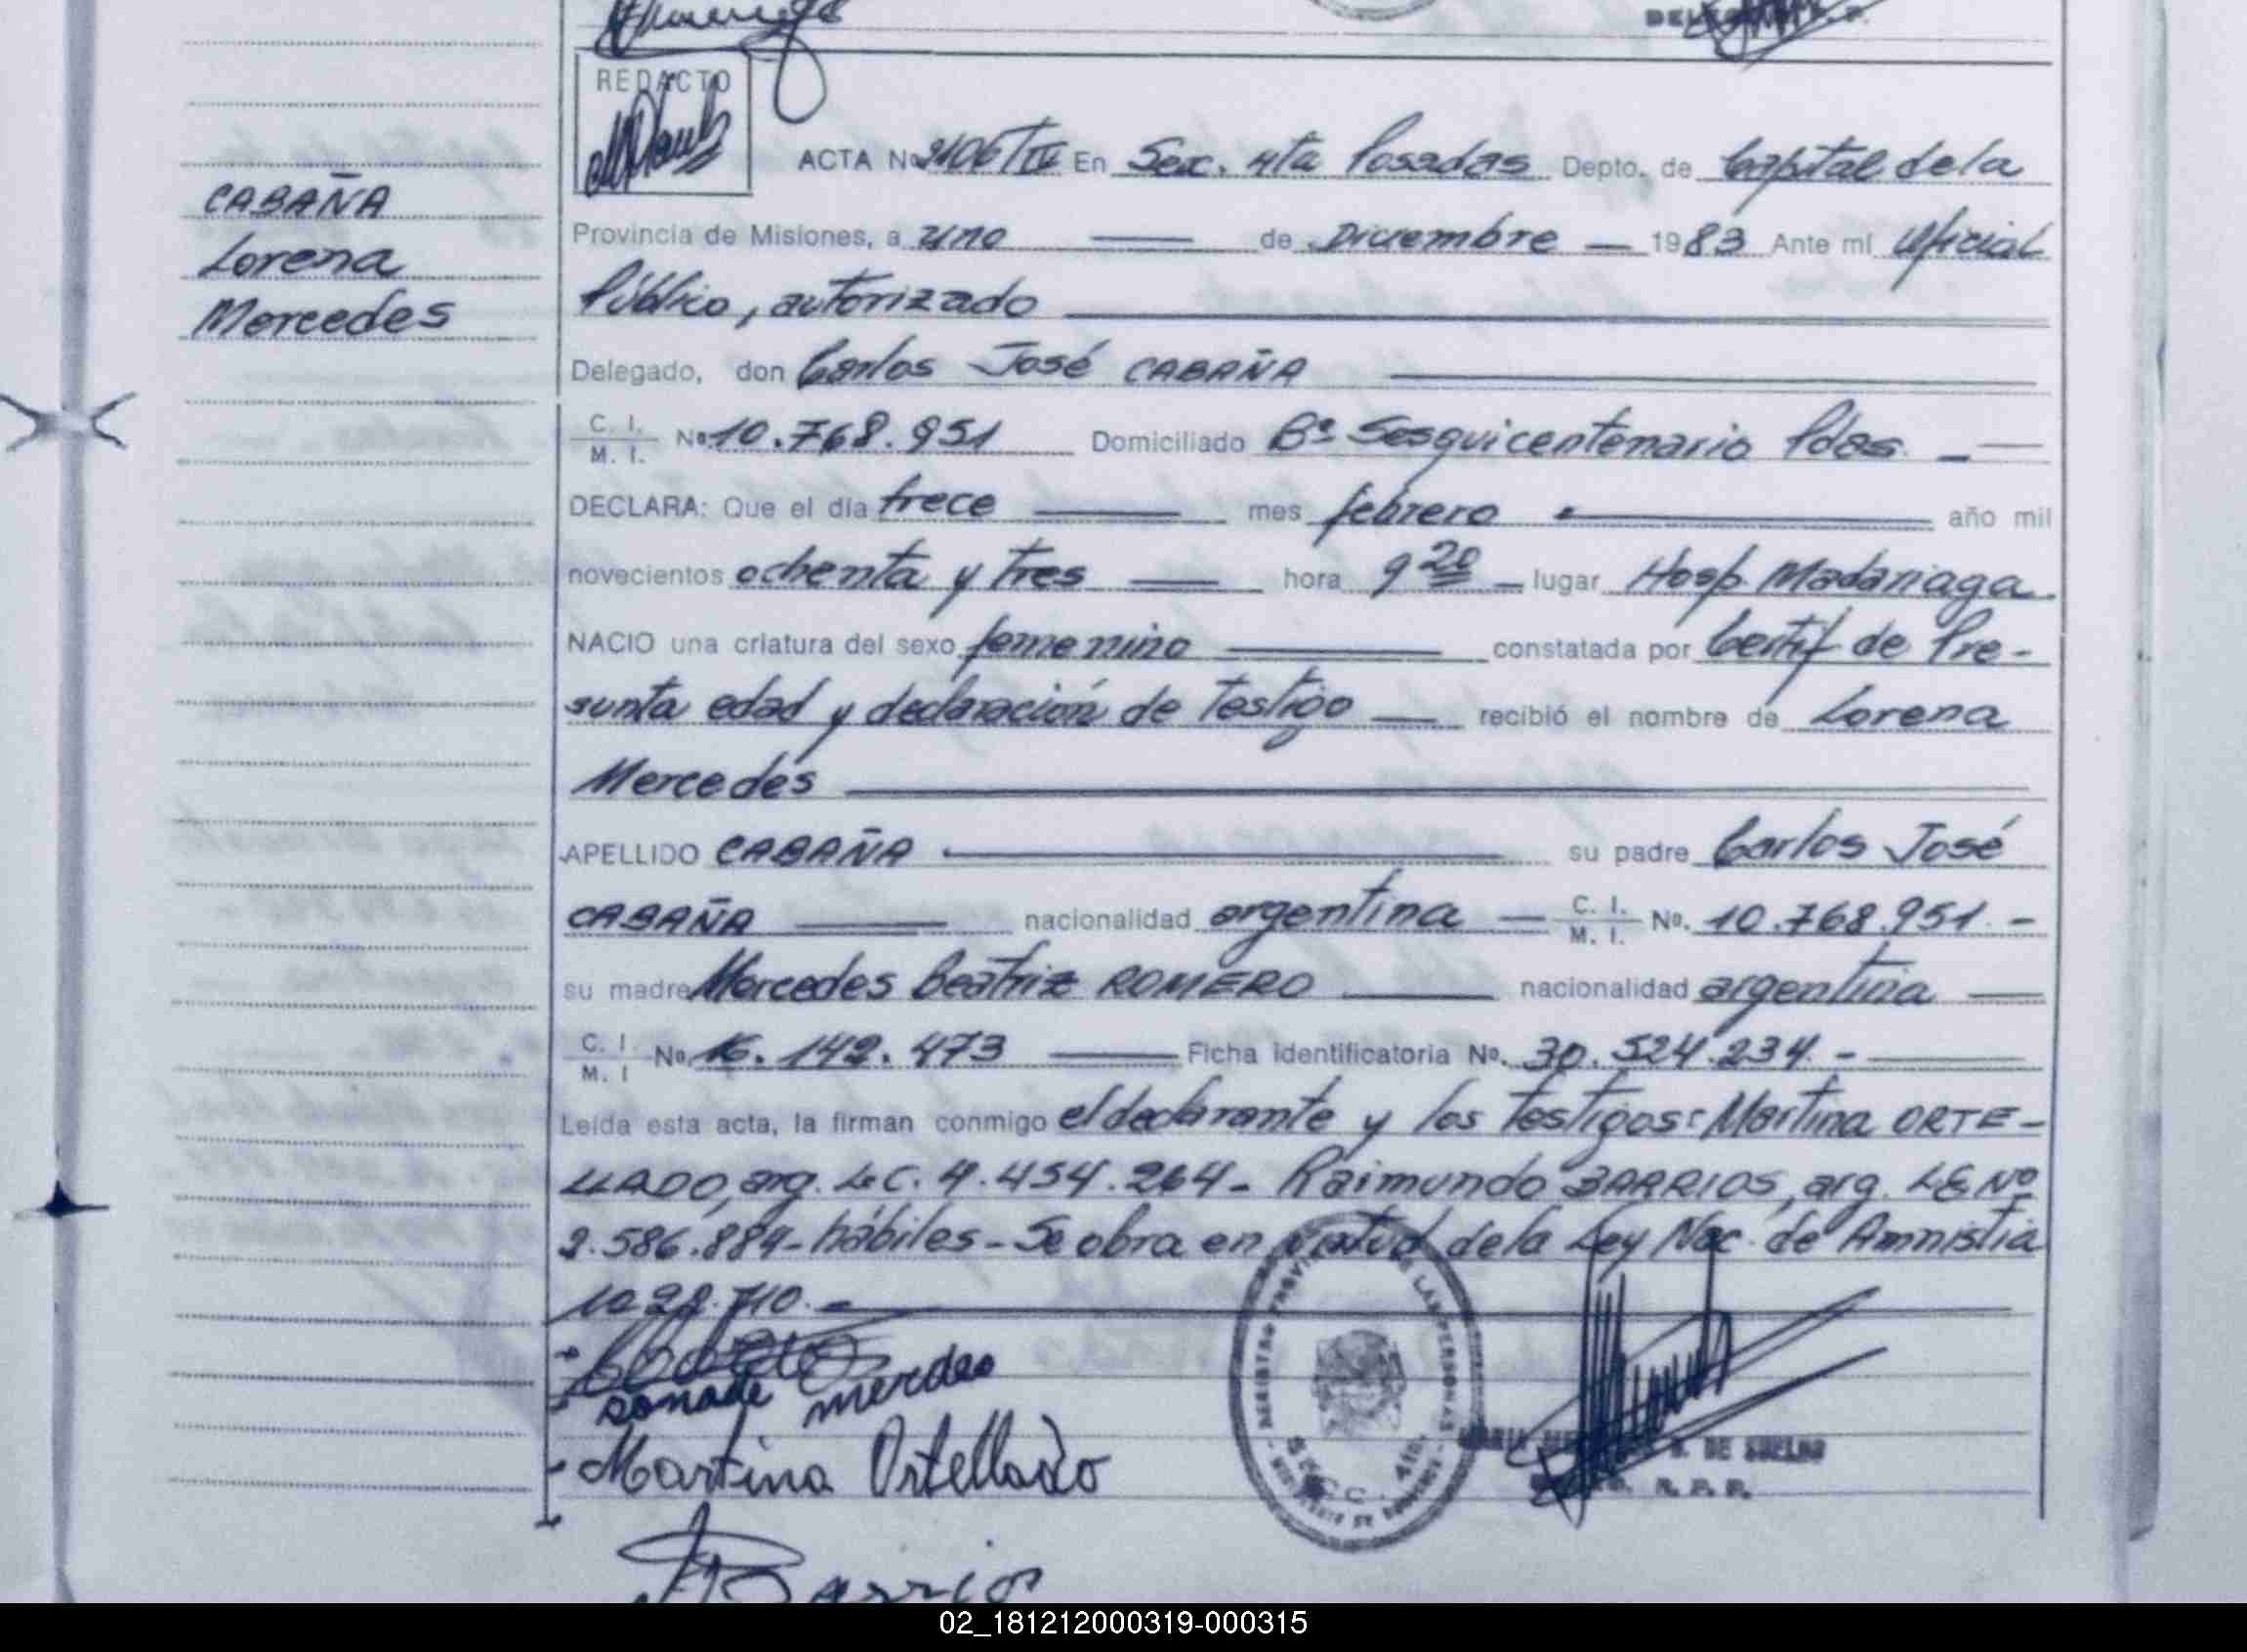 REDACTO
ACTA Nº 2106/IV En Sec. 4ta Posadas Depto. de Capital de la
CABAÑA
Lorena
Mercedes
Provincia de Misiones, a uno de Diciembre 1983 Ante mí Oficial
Público, autorizado
Delegado, don Carlos José CABAÑA
C. I. M. I. Nº 10.768.951 Domiciliado Bº Sesquicentenario Pdas.
DECLARA: Que el día trece mes febrero año mil
novecientos ochenta y tres hora 9 20 lugar Hosp. Madariaga.
NACIO una criatura del sexo femenino constatada por Certif de Pre-
sunta edad y declaración de testigo recibió el nombre de Lorena
Mercedes
APELLIDO CABAÑA su padre Carlos José
CABAÑA nacionalidad argentina C. I. M. I. Nº. 10.768.951.-
su madre Mercedes Beatriz ROMERO nacionalidad argentina
C. I M. I No. 16.142.473 Ficha identificatoria Nº. 30.524.234.-
Leída esta acta, la firman conmigo el declarante y los testigos: Martina ORTE-
LLADO, arg. L.C. 4.454.264- Raimundo BARRIOS, arg. LE Nº
2.586.884- hábiles- Se obra en virtud de la Ley Nac. de Amnistia
Nº 22.710.-
Martina Ortellado
SECC. 4ta.
DE SUELDO
R. P. P.
Barrios
02_181212000319-000315